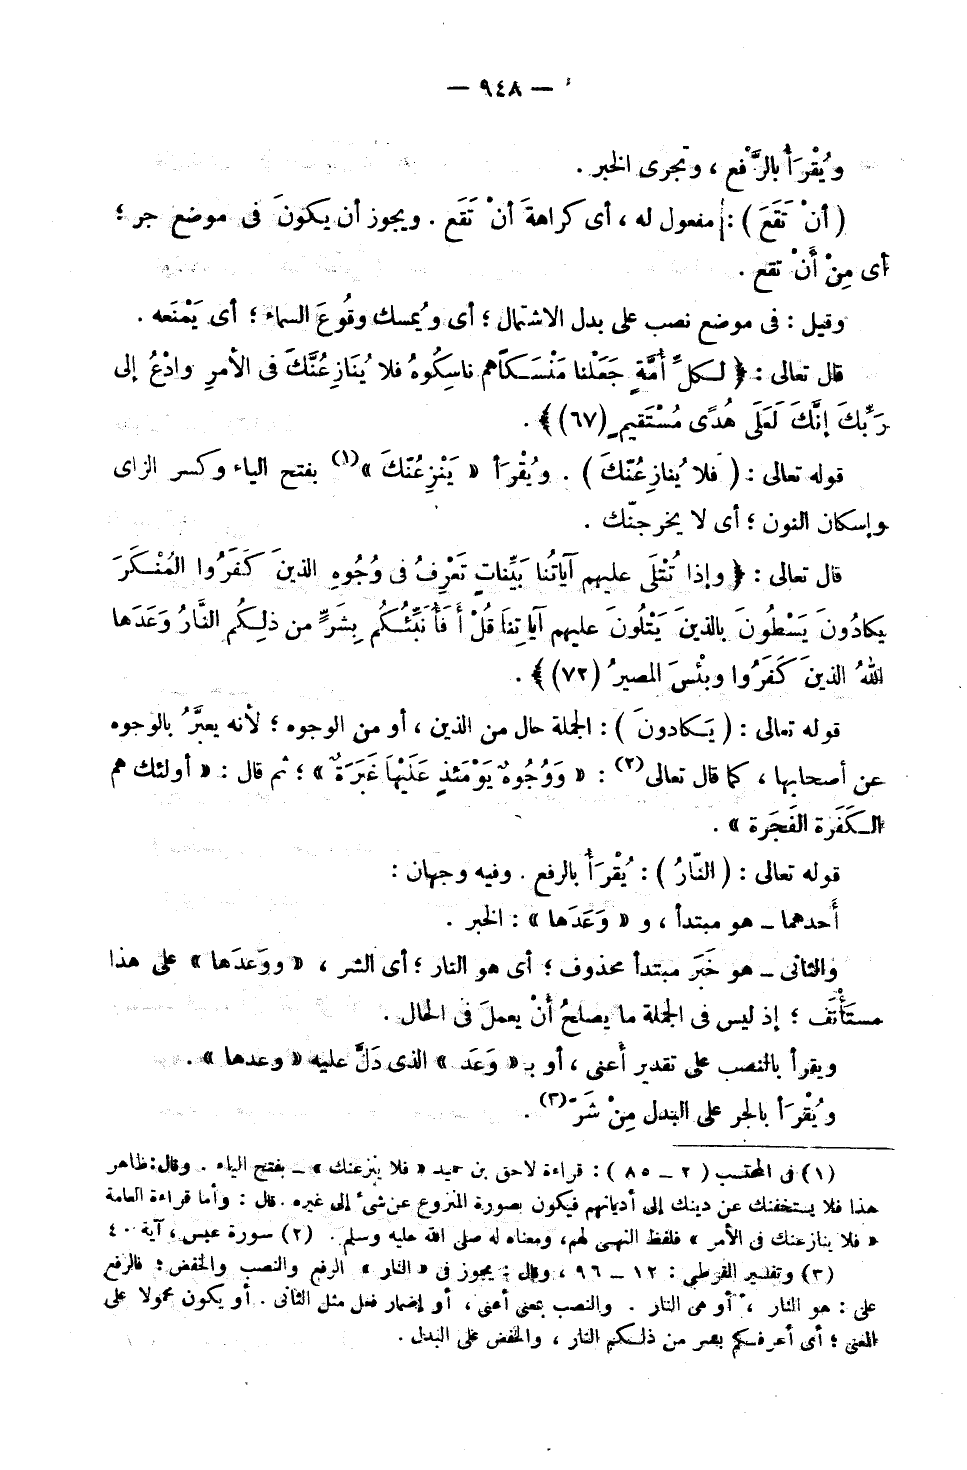 — ٩٤٨ —
ويُقْرَأُ بالرَّفْعِ ، وتجرى الخبر .
( أنْ تَقَعَ ) : مفعول له ، أى كراهةَ أنْ تَقَع . ويجوز أن يكونَ فى موضع جر ؛
أى مِنْ أَنْ تقع .
وقيل : فى موضع نصب على بدل الاشتمال ؛ أى ويُمسك وقُوعَ السماء ؛ أى يَمْنَعه .
قال تعالى : ﴿ لـكلِّ أُمَّةٍ جَعَلْنا مَنْسَـكاً هم ناسِكُوهُ فلا يُنَازِعُنَّكَ فى الأمرِ وادْعُ إلى
رَبِّكَ إنَّكَ لَعَلَى هُدًى مُسْتَقيمٍ (٦٧) ﴾ .
قوله تعالى : ( فلا يُنازِعُنّكَ ) . ويُقْرَأ « يَنْزِعُنّكَ »(١) بفتح الياء وكسر الزاى
وإسكان النون ؛ أى لا يخرجنّك .
قال تعالى : ﴿ وإذا تُتْلَى عليهم آياتُنا بَيِّناتٍ تَعْرِفُ فى وُجُوهِ الذينَ كَفَرُوا المُنْـكَرَ
يكادُونَ يَسْطُونَ بالذينَ يَتْلُونَ عليهم آياتِنا قُلْ أَفَأُنَبِّئُـكُم بِشَرٍّ من ذلِـكُم النَّارُ وَعَدَها
اللهُ الذينَ كَفَرُوا وبِئْسَ المصيرُ (٧٢) ﴾ .
قوله تعالى : ( يَـكادونَ ) : الجملة حال من الذين ، أو من الوجوه ؛ لأنه يعبَّرُ بالوجوه
عن أصحابها ، كما قال تعالى(٢) : « وَوُجُوهٌ يَوْمَئذٍ عَلَيْهَا غَبَرَةٌ » ؛ ثم قال : « أولئك هم
الـكَفَرة الفَجَرة » .
قوله تعالى : ( النّارُ ) : يُقْرَأُ بالرفع . وفيه وجهان :
أَحدهما ــ هو مبتدأ ، و « وَعَدَها » : الخبر .
والثانى ــ هو خَبَر مبتدأ محذوف ؛ أى هو النار ؛ أى الشر ، « ووَعدَها » على هذا
مستَأْنَف ؛ إذ ليس فى الجملة ما يصلحُ أنْ يعملَ فى الحال .
ويقرأ بالنصب على تقدير أَعنى ، أو بـ « وَعَد » الذى دَلَّ عليه « وعدها » .
ويُقْرَأ بالجر على البدل مِنْ شَرّ(٣) .
(١) فى المحتسب ( ٢ ــ ٨٥ ) : قراءة لاحق بن حميد « فلا ينزعنك » ــ بفتح الياء . وقال : ظاهر
هذا فلا يستخفنك عن دينك إلى أديانهم فيكون بصورة المنزوع عن شىء إلى غيره . قال : وأما قراءة العامة
« فلا ينازعنك فى الأمر » فلفظ النهـى لهم، ومعناه له صلى الله عليه وسلم . (٢) سورة عبس ، آية ٤٠
(٣) وتفسير القرطبى : ١٢ ــ ٩٦ ، وقال : يجوز فى « النار » الرفع والنصب والخفض : فالرفع
على : هو النار ، أو هى النار . والنصب بمعنى أعنى ، أو إضمار فعل مثل الثانى . أو يكون محمولا على
المعنى ؛ أى أعرفـكم بشر من ذلـكم النار ، والخفض على البدل .